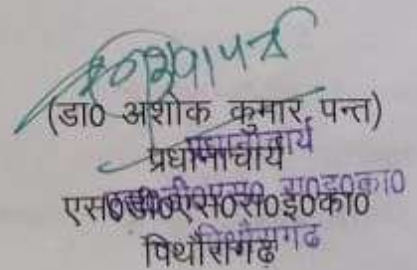 (डा0 अशोक कुमार पन्त)
प्रधानाचार्य
एस0डी0एस0स0इ0का0
पिथौरागढ़